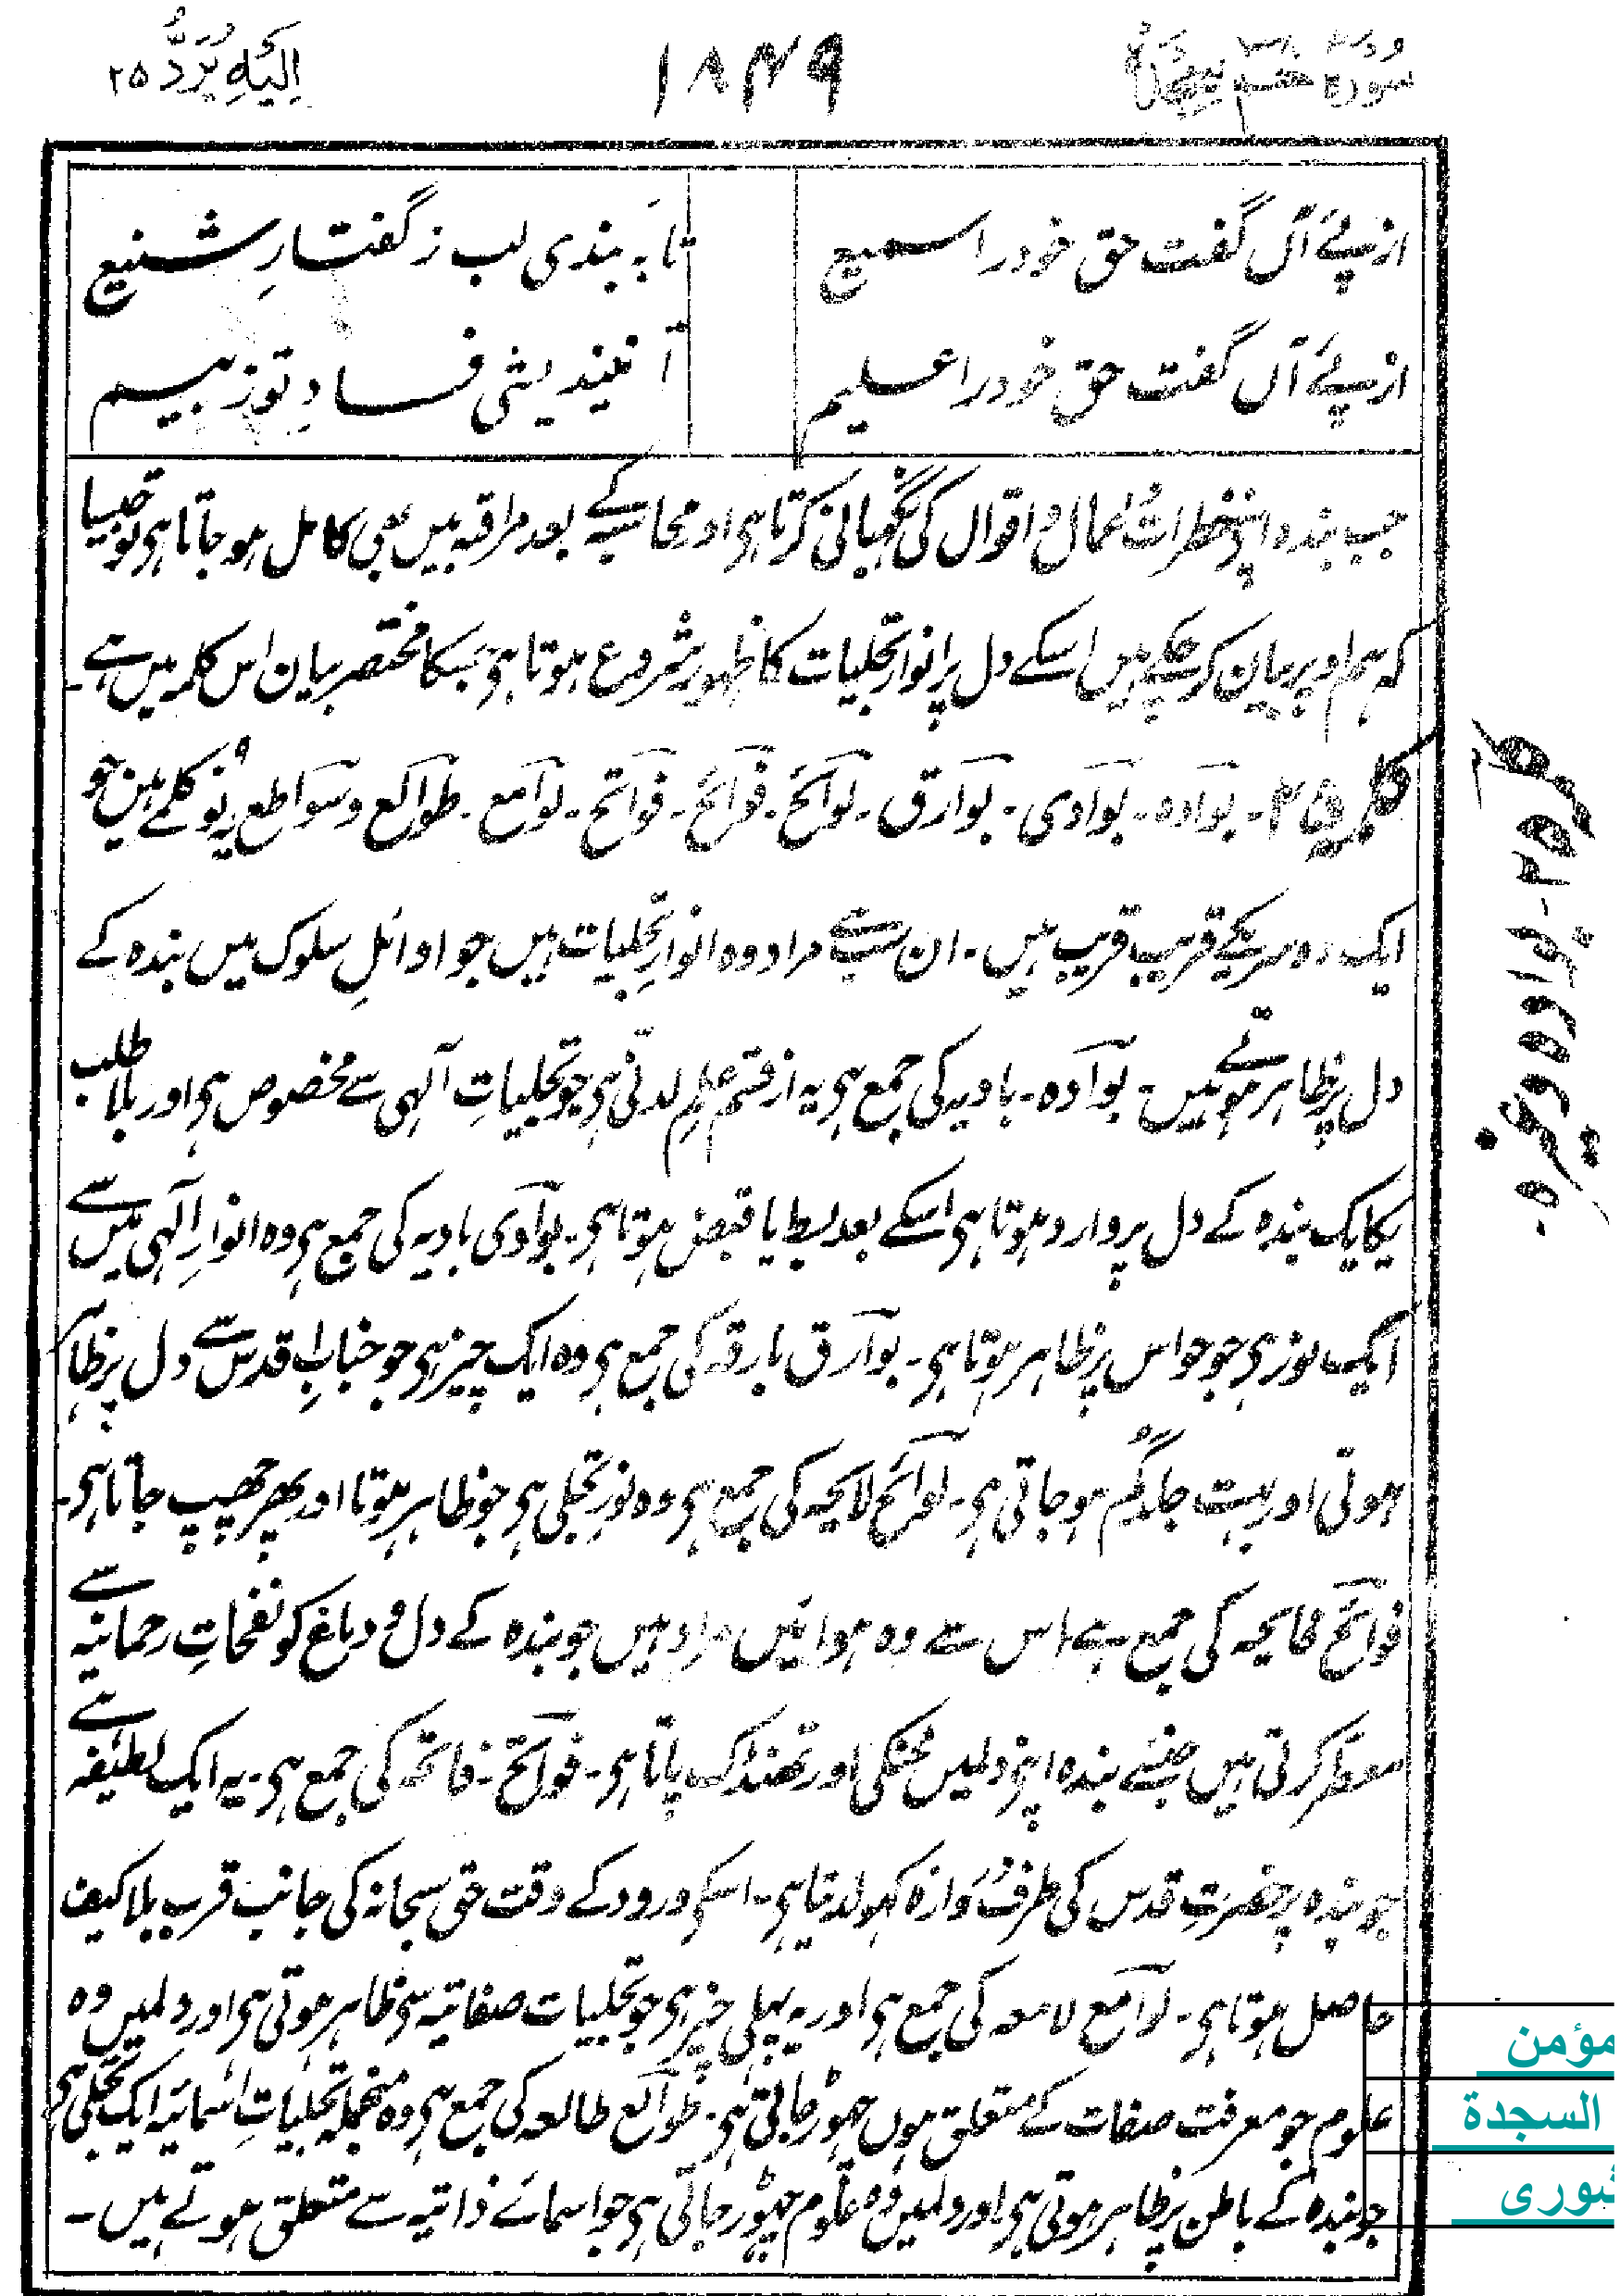 سورہ حٰمٓ سجدۃ
۱۸۴۹
اِلَیْہِ یُرَدُّ ۲۵
از پئے آں گفت حق خود را سمیع
تا بہ بندی لب ز گفتارِ شنیع
از پئے آں گفت حق خود را علیم
تا نیندیشی فسادِ تو ز بیم
جب بندہ اپنے خطرات اعمال و اقوال کی نگہبانی کرتا ہی اور محاسبہ کے بعد مراقبہ میں بھی کامل ہو جاتا ہی تو جیسا
کہ ہم اوپر بیان کر چکے ہیں اسکے دل پر انوار تجلیات کا ظہور شروع ہوتا ہی جسکا مختصر بیان اس کلمہ میں ہے۔
کلمہ ۲۵۔ بوآدہ۔ بوآدی۔ بوآرق۔ لوآئح۔ فوآئح۔ فوآتح۔ لوآمع۔ طوآلع و سوآطع یہ نو کلمے ہیں جو
ایک دوسریکے قریب قریب ہیں۔ ان سب سے مراد وہ انوارِ تجلیات ہیں جو اوائلِ سلوک میں بندہ کے
دل پر ظاہر ہوتے ہیں۔ بوآدہ۔ بادیہ کی جمع ہی یہ از قسم علمِ لدنی ہی جو تجلیاتِ آلہی سے مخصوص ہی اور بلا طلب
یکایک بندہ کے دل پر وارد ہوتا ہی اسکے بعد بسط یا قبض ہوتا ہی۔ بوآدی بادیہ کی جمع ہی وہ انوارِ آلہی میں سے
ایک نور ہی جو حواس پر ظاہر ہوتا ہی۔ بوآرق بارقہ کی جمع ہی وہ ایک چیز ہی جو جنابِ اقدس سے دل پر ظاہر
ہوتی اور بہت جلد گم ہو جاتی ہی۔ لوآئح لایحہ کی جمع ہی وہ نور تجلی ہی جو ظاہر ہوتا اور پھر چھپ جاتا ہی۔
فوآئح فایحہ کی جمع ہے اس سے وہ ہوائیں مراد ہیں جو بندہ کے دل و دماغ کو نفحاتِ رحمانیہ سے
معطر کرتی ہیں جنسے بندہ اپنے دلمیں خنکی اور ٹھنڈک پاتا ہی۔ فوآتح۔ فاتحہ کی جمع ہی۔ یہ ایک لطیفہ ہے
جو بندہ پر حضرتِ قدس کی طرف دروازہ کھولدیتا ہی۔ اسکے ورود کے وقت حق سبحانہ کی جانب قرب بلا کیف
حاصل ہوتا ہی۔ لوآمع لامعہ کی جمع ہی اور یہ پہلی چیز ہی جو تجلیات صفاتیہ سی ظاہر ہوتی ہی اور دلمیں وہ
علوم جو معرفت صفات کے متعلق ہوں چھوڑ جاتی ہی۔ طوآلع طالعہ کی جمع ہی وہ منجملہ تجلیاتِ اسمائیہ ایک تجلی ہی
جو بندہ کے باطن پر ظاہر ہوتی ہی اور دلمیں وہ علوم چھوڑ جاتی ہی جو اسمائے ذاتیہ سے متعلق ہوتے ہیں۔
کلمہ ۲۵۔ بوادہ وغیرہ
مؤمن
السجدة
شورى